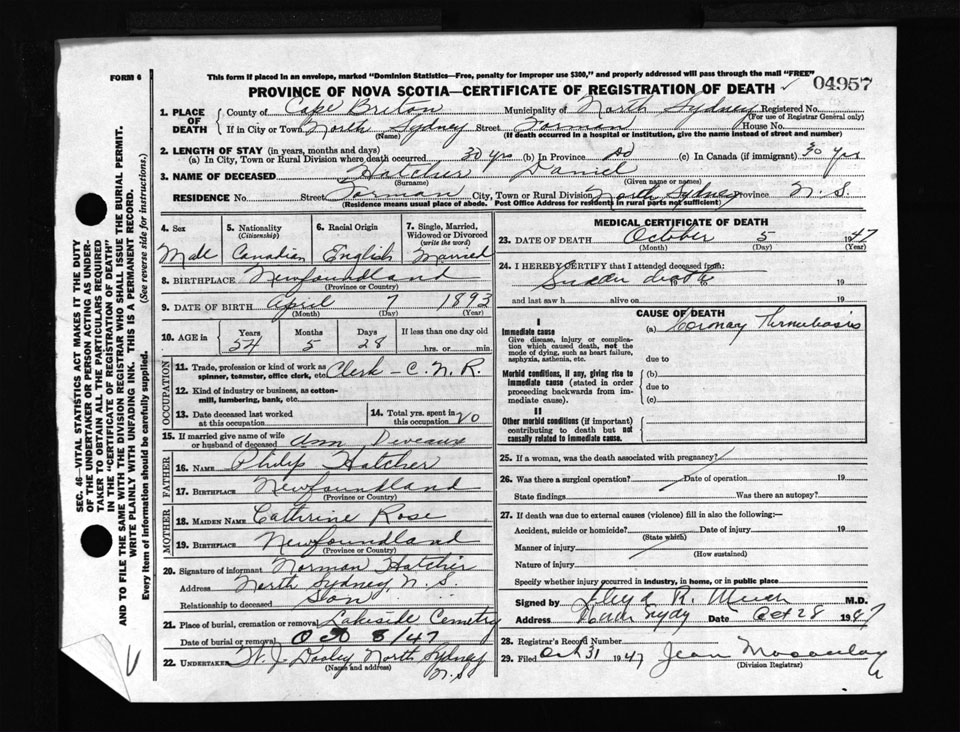 FORM 6
This form if placed in an envelope, marked "Dominion Statistics—Free, penalty for improper use $300," and properly addressed will pass through the mail "FREE"
PROVINCE OF NOVA SCOTIA—CERTIFICATE OF REGISTRATION OF DEATH 04957
1. PLACE OF DEATH
County of Cape Breton Municipality of North Sydney Registered No.
(For use of Registrar General only)
If in City or Town North Sydney Street Forman House No.
(Name) (If death occurred in a hospital or institution, give the name instead of street and number)
2. LENGTH OF STAY (in years, months and days)
(a) In City, Town or Rural Division where death occurred 30 yrs (b) In Province Do (c) In Canada (if immigrant) 30 yrs
3. NAME OF DECEASED Hatcher Daniel
(Surname) (Given name or names)
RESIDENCE No. Street Forman City, Town or Rural Division North Sydney Province N.S.
(Residence means usual place of abode. Post Office Address for residents in rural parts not sufficient)
4. Sex
Male
5. Nationality
(Citizenship)
Canadian
6. Racial Origin
English
7. Single, Married, Widowed or Divorced
(write the word)
Married
8. BIRTHPLACE Newfoundland
(Province or Country)
9. DATE OF BIRTH April 7 1893
(Month) (Day) (Year)
10. AGE in
Years Months Days If less than one day old
54 5 28 hrs. or min.
OCCUPATION
11. Trade, profession or kind of work as spinner, teamster, office clerk, etc. Clerk - C.N.R.
12. Kind of industry or business, as cotton-mill, lumbering, bank, etc.
13. Date deceased last worked at this occupation
14. Total yrs. spent in this occupation 20
15. If married give name of wife or husband of deceased Ann Deveaux
FATHER
16. NAME Philip Hatcher
17. BIRTHPLACE Newfoundland
(Province or Country)
MOTHER
18. MAIDEN NAME Cathrine Rose
19. BIRTHPLACE Newfoundland
(Province or Country)
20. Signature of informant Norman Hatcher
Address North Sydney, N.S.
Relationship to deceased Son
21. Place of burial, cremation or removal Lakeside Cemetry
Date of burial or removal Oct 8/47
22. UNDERTAKER W. J. Dooley North Sydney N.S
(Name and address)
MEDICAL CERTIFICATE OF DEATH
23. DATE OF DEATH October 5 1947
(Month) (Day) (Year)
24. I HEREBY CERTIFY that I attended deceased from:
Sudden death 19
and last saw h alive on 19
CAUSE OF DEATH
I
Immediate cause (a) Coronary Thrombosis
Give disease, injury or complication which caused death, not the mode of dying, such as heart failure, asphyxia, asthenia, etc.
due to
Morbid conditions, if any, giving rise to immediate cause (stated in order proceeding backwards from immediate cause).
(b)
due to
(c)
II
Other morbid conditions (if important) contributing to death but not causally related to immediate cause.
25. If a woman, was the death associated with pregnancy?
26. Was there a surgical operation? Date of operation 19
State findings Was there an autopsy?
27. If death was due to external causes (violence) fill in also the following:—
Accident, suicide or homicide? Date of injury 19
(State which)
Manner of injury
(How sustained)
Nature of injury
Specify whether injury occurred in industry, in home, or in public place
Signed by R. M.D.
Address North Sydney Date Oct 28 1947
28. Registrar's Record Number
29. Filed Oct 31 1947 Jean Macaulay
(Division Registrar)
SEC. 46—VITAL STATISTICS ACT MAKES IT THE DUTY
OF THE UNDERTAKER OR PERSON ACTING AS UNDER-
TAKER TO OBTAIN ALL THE PARTICULARS REQUIRED
IN THE "CERTIFICATE OF REGISTRATION OF DEATH"
AND TO FILE THE SAME WITH THE DIVISION REGISTRAR WHO SHALL ISSUE THE BURIAL PERMIT.
WRITE PLAINLY WITH UNFADING INK. THIS IS A PERMANENT RECORD.
Every item of information should be carefully supplied. (See reverse side for instructions.)